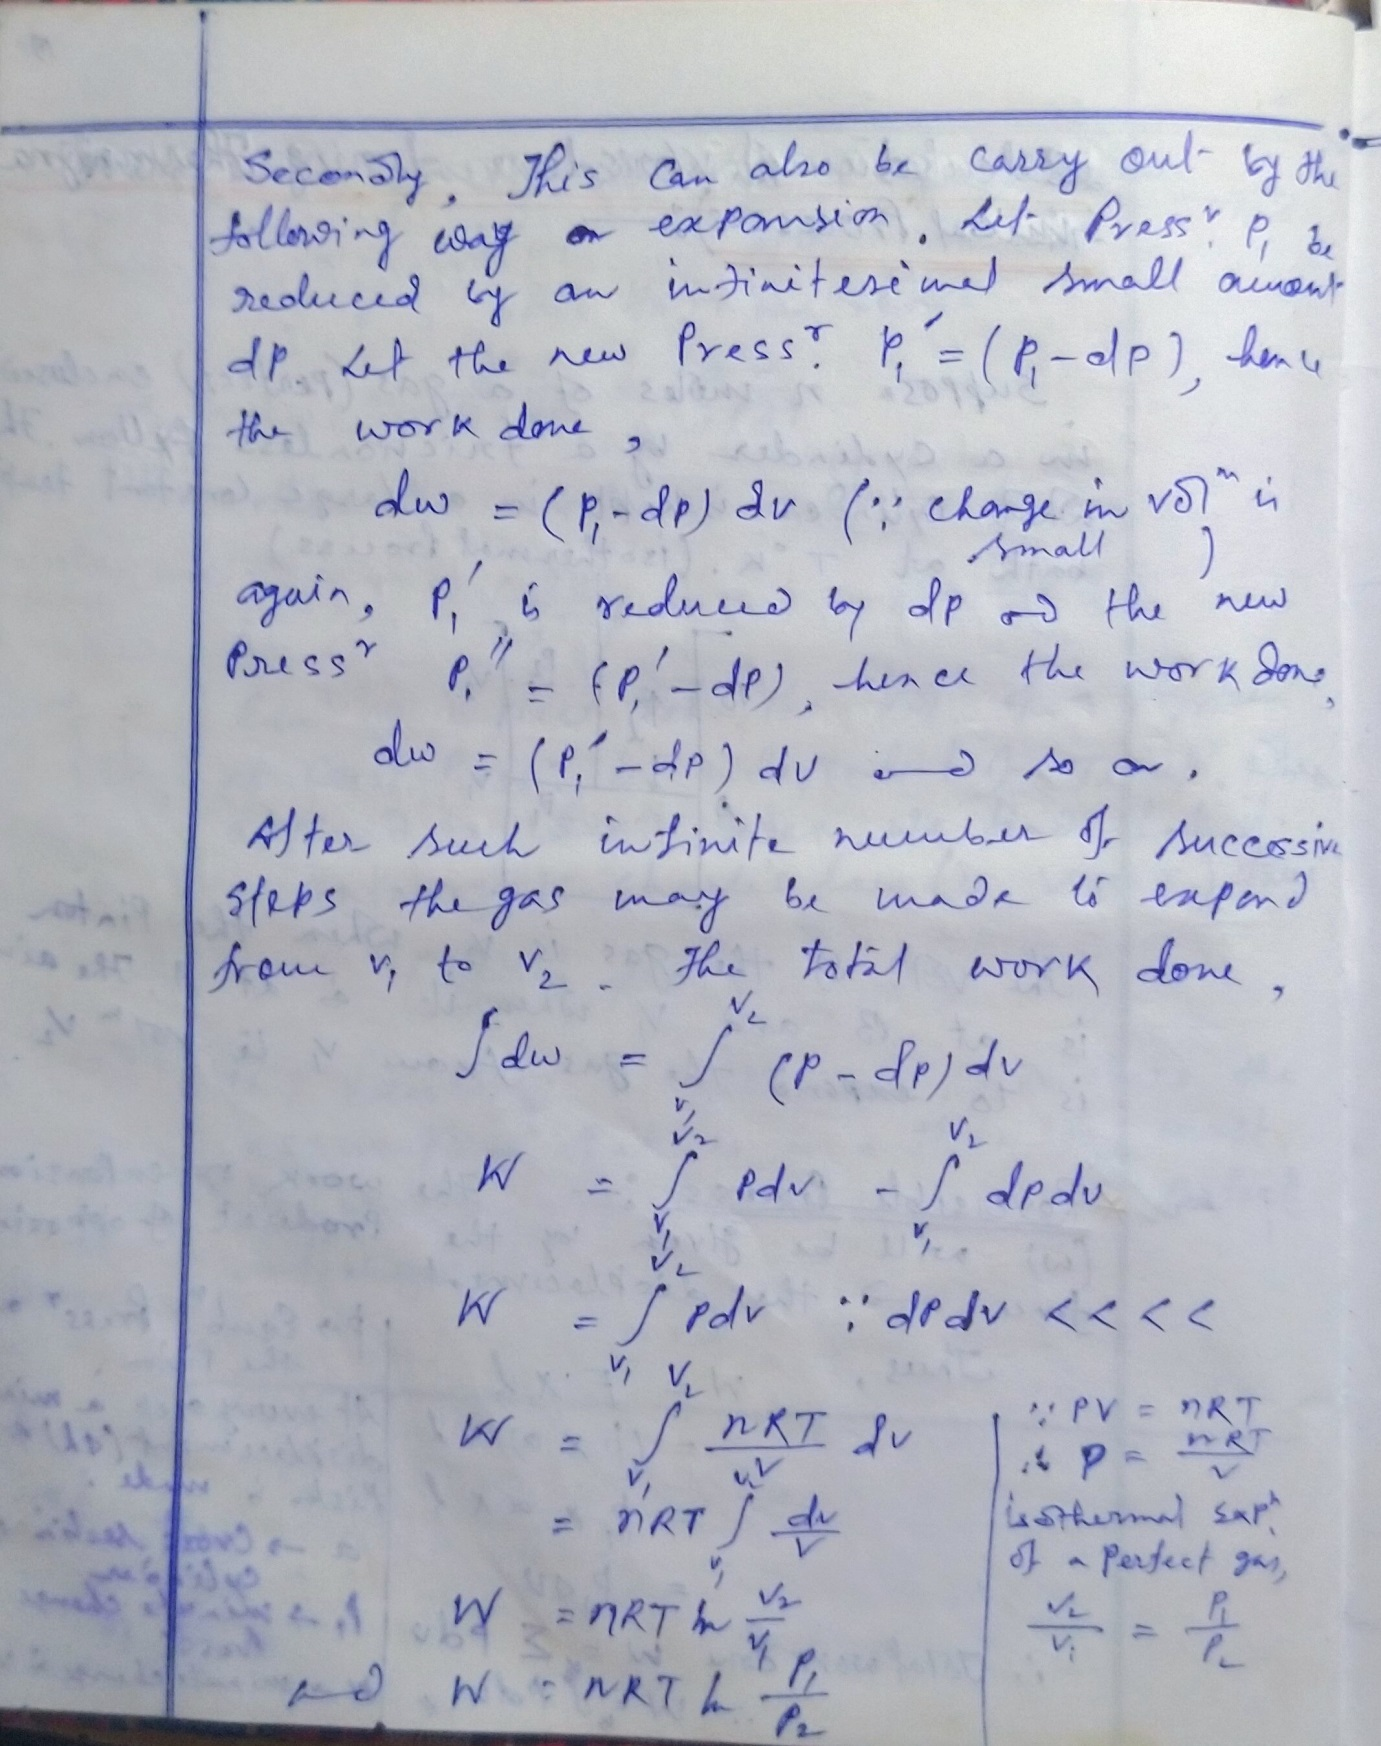 Secondly, This can also be carry out by the
following way on expansion. Let Press^r. P₁ be
reduced by an infinitesimel small amount
dp Let the new Press^r. P₁′ = (P₁ - dp), hence
the work done,
dw = (P₁ - dp) dv (∵ change in vol^m is
small )
again, P₁′ is reduced by dp and the new
Press^r P₁″ = (P₁′ - dp), hence the work done,
dw = (P₁′ - dp) dv and so on.
After such infinite number of successive
steps the gas may be made to expand
from v₁ to v₂. The total work done,
∫dw = ∫_{v₁}^{v₂} (P - dp) dv
W = ∫_{v₁}^{v₂} Pdv - ∫_{v₁}^{v₂} dpdv
W = ∫_{v₁}^{v₂} Pdv ∵ dpdv < < < <
W = ∫_{v₁}^{v₂} nRT/V dv
= nRT ∫_{v₁}^{v₂} dv/v
W = nRT ln v₂/v₁
and W = nRT ln P₁/P₂
∵ PV = nRT
∴ P = nRT/v
isothermal exp^n.
of a perfect gas,
v₂/v₁ = P₁/P₂